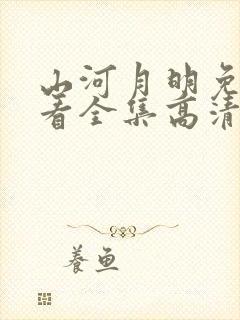 山河月明免
看全集高清
養鱼